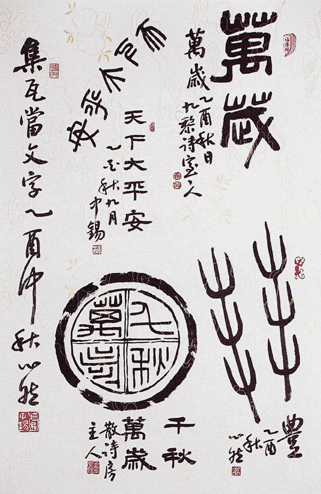 萬歲
萬歲 乙酉秋日
九黎诗室人
天下大平安
天下大平安
乙酉秋九月
中錫
豐
乙酉
秋
心然
千秋萬歲
千秋
萬歲
散诗房
主人
集瓦當文字乙酉中秋心然